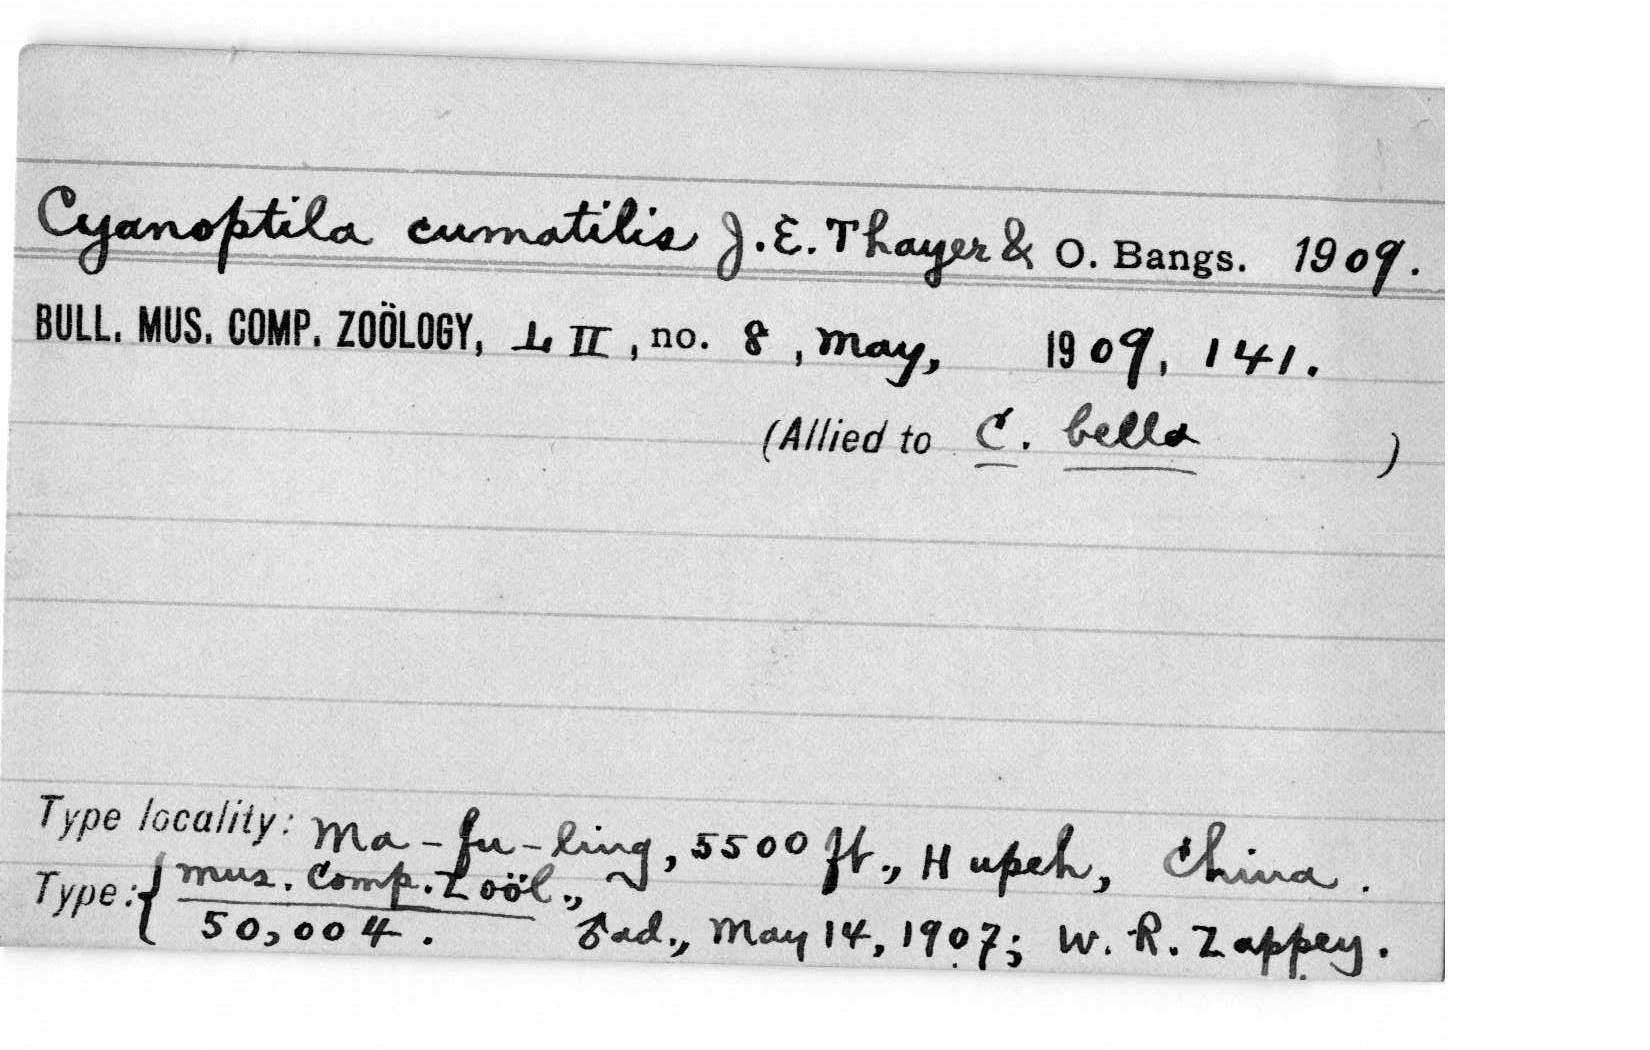 Cyanoptila cumatilis J.E. Thayer & O. Bangs. 1909.
BULL. MUS. COMP. ZOÖLOGY, LII, no. 8, May, 1909, 141.
(Allied to C. bella )
Type locality: Ma-fu-ling, 5500 ft., Hupeh, China.
Type: { Mus. Comp. Zoöl.,
50,004. ♂ad., May 14, 1907; W. R. Zappey.